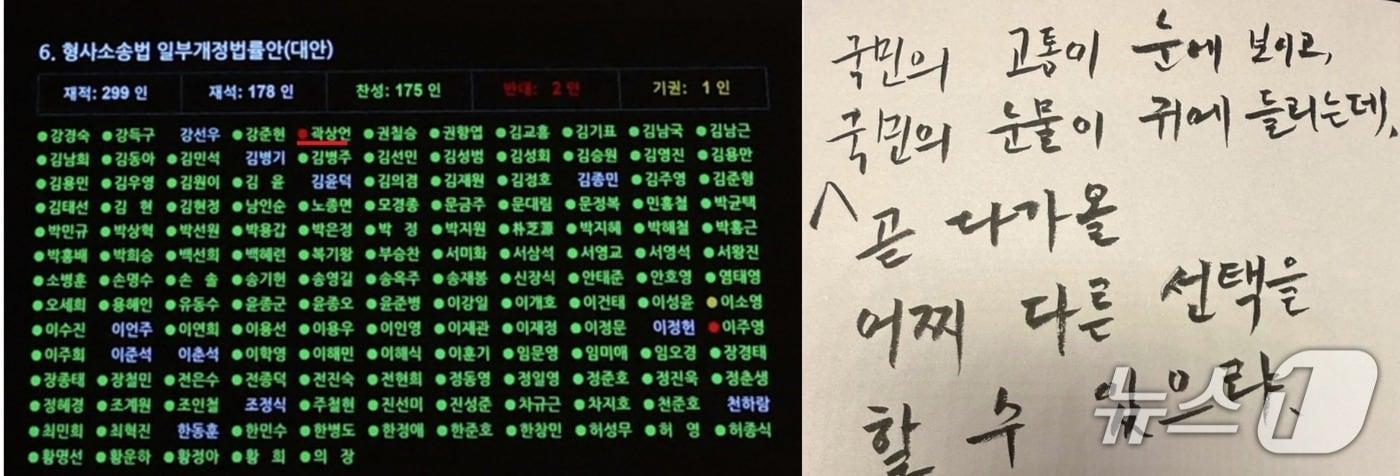 6. 형사소송법 일부개정법률안(대안)
재적: 299 인 재석: 178 인 찬성: 175 인 반대: 2 인 기권: 1 인
강경숙 강득구 강선우 강준현 곽상언 권칠승 권향엽 김교흥 김기표 김남국 김남근
김남희 김동아 김민석 김병기 김병주 김선민 김성범 김성회 김승원 김영진 김용만
김용민 김우영 김원이 김 윤 김윤덕 김의겸 김재원 김정호 김종민 김주영 김준형
김태선 김 현 김현정 남인순 노종면 모경종 문금주 문대림 문정복 민홍철 박균택
박민규 박상혁 박선원 박용갑 박은정 박 정 박지원 朴芝源 박지혜 박해철 박홍근
박홍배 박희승 백선희 백혜련 복기왕 부승찬 서미화 서삼석 서영교 서영석 서왕진
소병훈 손명수 손 솔 송기헌 송영길 송옥주 송재봉 신장식 안태준 안호영 염태영
오세희 용혜인 유동수 윤종군 윤종오 윤준병 이강일 이개호 이건태 이성윤 이소영
이수진 이언주 이연희 이용선 이용우 이인영 이재관 이재정 이정문 이정헌 이주영
이주희 이준석 이춘석 이학영 이해민 이해식 이훈기 임문영 임미애 임오경 장경태
장종태 장철민 전은수 전종덕 전진숙 전현희 정동영 정일영 정준호 정진욱 정춘생
정혜경 조계원 조인철 조정식 주철현 진선미 진성준 차규근 차지호 천준호 천하람
최민희 최혁진 한동훈 한민수 한병도 한정애 한준호 한창민 허성무 허 영 허종식
황명선 황운하 황정아 황 희 의 장
국민의 고통이 눈에 보이고,
국민의 눈물이 귀에 들리는데,
곧 다가올
어찌 다른 선택을
할 수 있으랴.
뉴스1